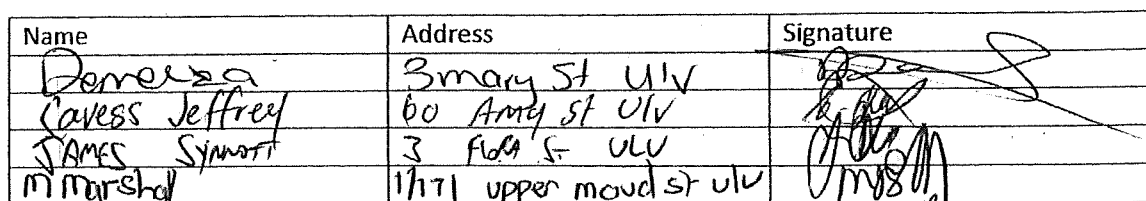 Name Address Signature
Demelza 3 mary St Ulv
Cavess Jeffrey 60 Amy St Ulv
JAMES SYNNOTT 3 FLORA St ULV
m marshall upper maud st ulv